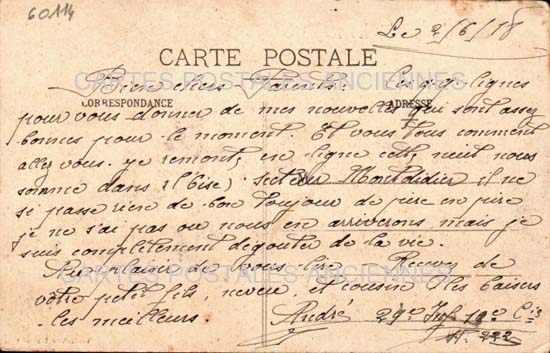 60114
Le 2/6/18
CARTE POSTALE
Bien chers Parents. Ces qq lignes
CARTES POSTALES ANCIENNES
CORRESPONDANCE ADRESSE
pour vous donner de mes nouvelles qui sont assez
bonnes pour le moment. Et vous tous comment
allez vous. je remont, en ligne cette nuit nous
somme dans (l'Oise) secteur Montdidier il ne
si passe rien de bon toujour de pire en pire
je ne s'ai pas ou nous en arriverons mais je
suis complètement dégouter de la vie.
Au plaisir de vous lire Recevez de
CARTES POSTALES ANCIENNES
votre petit fils, neveu, et cousin les baisers
les meilleurs. André 29e Inf 10e Cie